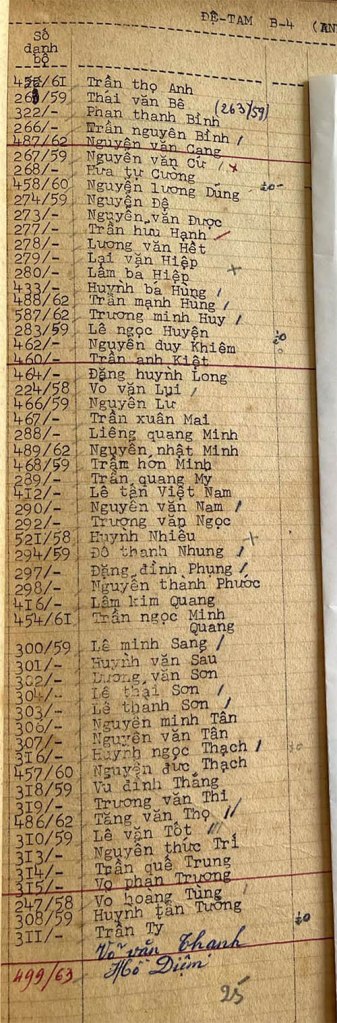 ĐỆ-TAM B-4 (AN
Số
danh
bộ
455/6I Trần thọ Anh
260/59 Thái văn Bê (263/59)
322/- Phan thanh Bình
266/- Trần nguyên Bình /
487/62 Nguyễn văn Cang
267/59 Nguyễn văn Cư /
268/- Hứa tự Cường
458/60 Nguyễn lương Dũng
274/59 Nguyễn Đệ
273/- Nguyễn văn Được
277/- Trần hưu Hạnh
278/- Lương văn Hết
279/- Lại văn Hiệp
280/- Lâm bá Hiệp
433/- Huỳnh bá Hùng /
488/62 Trần mạnh Hùng /
587/62 Trương minh Huy /
283/59 Lê ngọc Huyện
462/- Nguyễn duy Khiêm
460/- Trần anh Kiệt
464/- Đặng huỳnh Long
224/58 Vo văn Lui /
466/59 Nguyễn Lư
467/- Trần xuân Mai
288/- Liêng quang Minh
489/62 Nguyễn nhật Minh
468/59 Trầm hơn Minh
289/- Trần quang My
4I2/- Lê tấn Việt Nam
290/- Nguyễn văn Nam /
292/- Trương văn Ngọc
52I/58 Huỳnh Nhiêu
294/59 Đỗ thanh Nhung /
297/- Đặng đình Phung /
298/- Nguyễn thanh Phước
4I6/- Lâm kim Quang
454/6I Trần ngọc Minh
Quang
300/59 Lê minh Sang /
30I/- Huỳnh văn Sau
302/- Dương văn Sơn
304/- Lê thái Sơn /
303/- Lê thanh Sơn /
306/- Nguyễn minh Tân
307/- Nguyễn văn Tân
3I6/- Huỳnh ngọc Thạch /
457/60 Nguyễn đức Thạch
3I8/59 Vu đình Thắng
3I9/- Trương văn Thi
486/62 Tăng văn Thọ //
3I0/59 Lê văn Tốt //
3I3/- Nguyễn thức Trí
3I4/- Trần quế Trung
3I5/- Vo phan Trương
247/58 Vo hoàng Tùng /
308/59 Huỳnh tấn Tường
3II/- Trần Ty
Võ văn Thạnh
499/63 Hồ Diệm
25